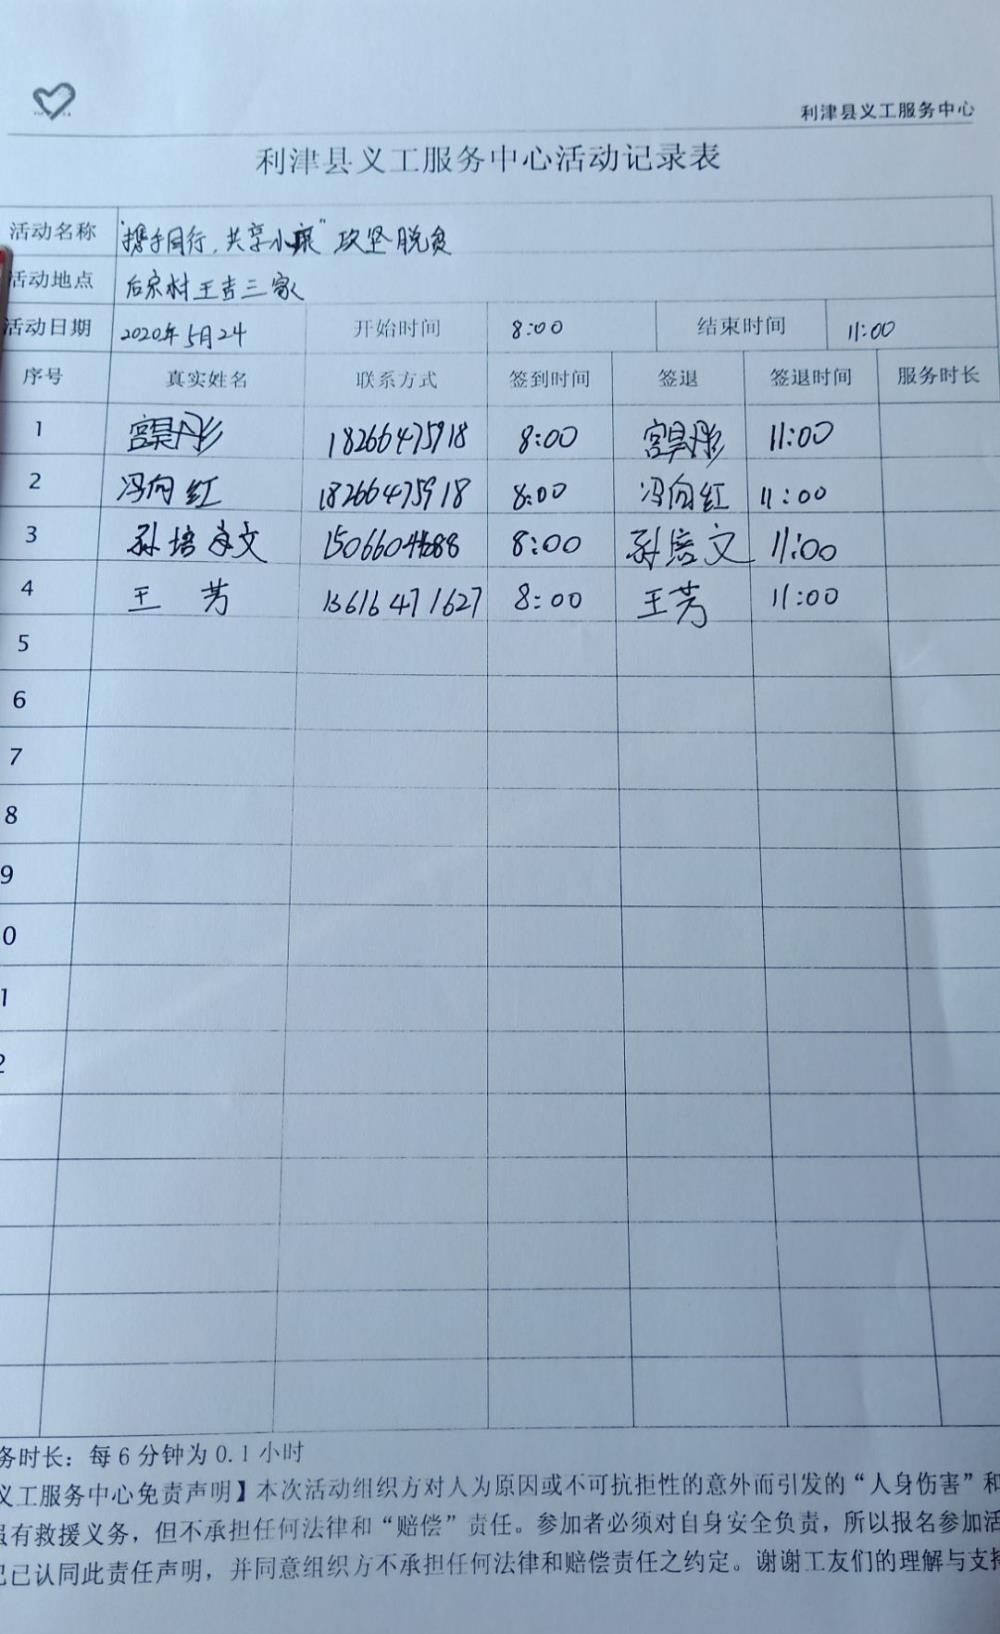 利津县义工服务中心
利津县义工服务中心活动记录表
活动名称 “携手同行,共享小康”攻坚脱贫
活动地点 后宋村王吉三家
活动日期 2020年5月24 开始时间 8:00 结束时间 11:00
序号 真实姓名 联系方式 签到时间 签退 签退时间 服务时长
1 宫昊彤 18266475918 8:00 宫昊彤 11:00
2 冯向红 18266475918 8:00 冯向红 11:00
3 孙培文 8:00 孙培文 11:00
4 王芳 13616471627 8:00 王芳 11:00
5
6
7
8
9
0
1
2
务时长：每6分钟为0.1小时
义工服务中心免责声明】本次活动组织方对人为原因或不可抗拒性的意外而引发的“人身伤害”和
虽有救援义务，但不承担任何法律和“赔偿”责任。参加者必须对自身安全负责，所以报名参加活
己已认同此责任声明，并同意组织方不承担任何法律和赔偿责任之约定。谢谢工友们的理解与支持